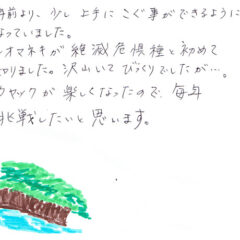 前より、少し上手にこぐ事ができるように
なっていました。
オマネキが絶滅危惧種と初めて
知りました。沢山いてびっくりでしたが…。
カヤックが楽しくなったので、毎年
挑戦したいと思います。